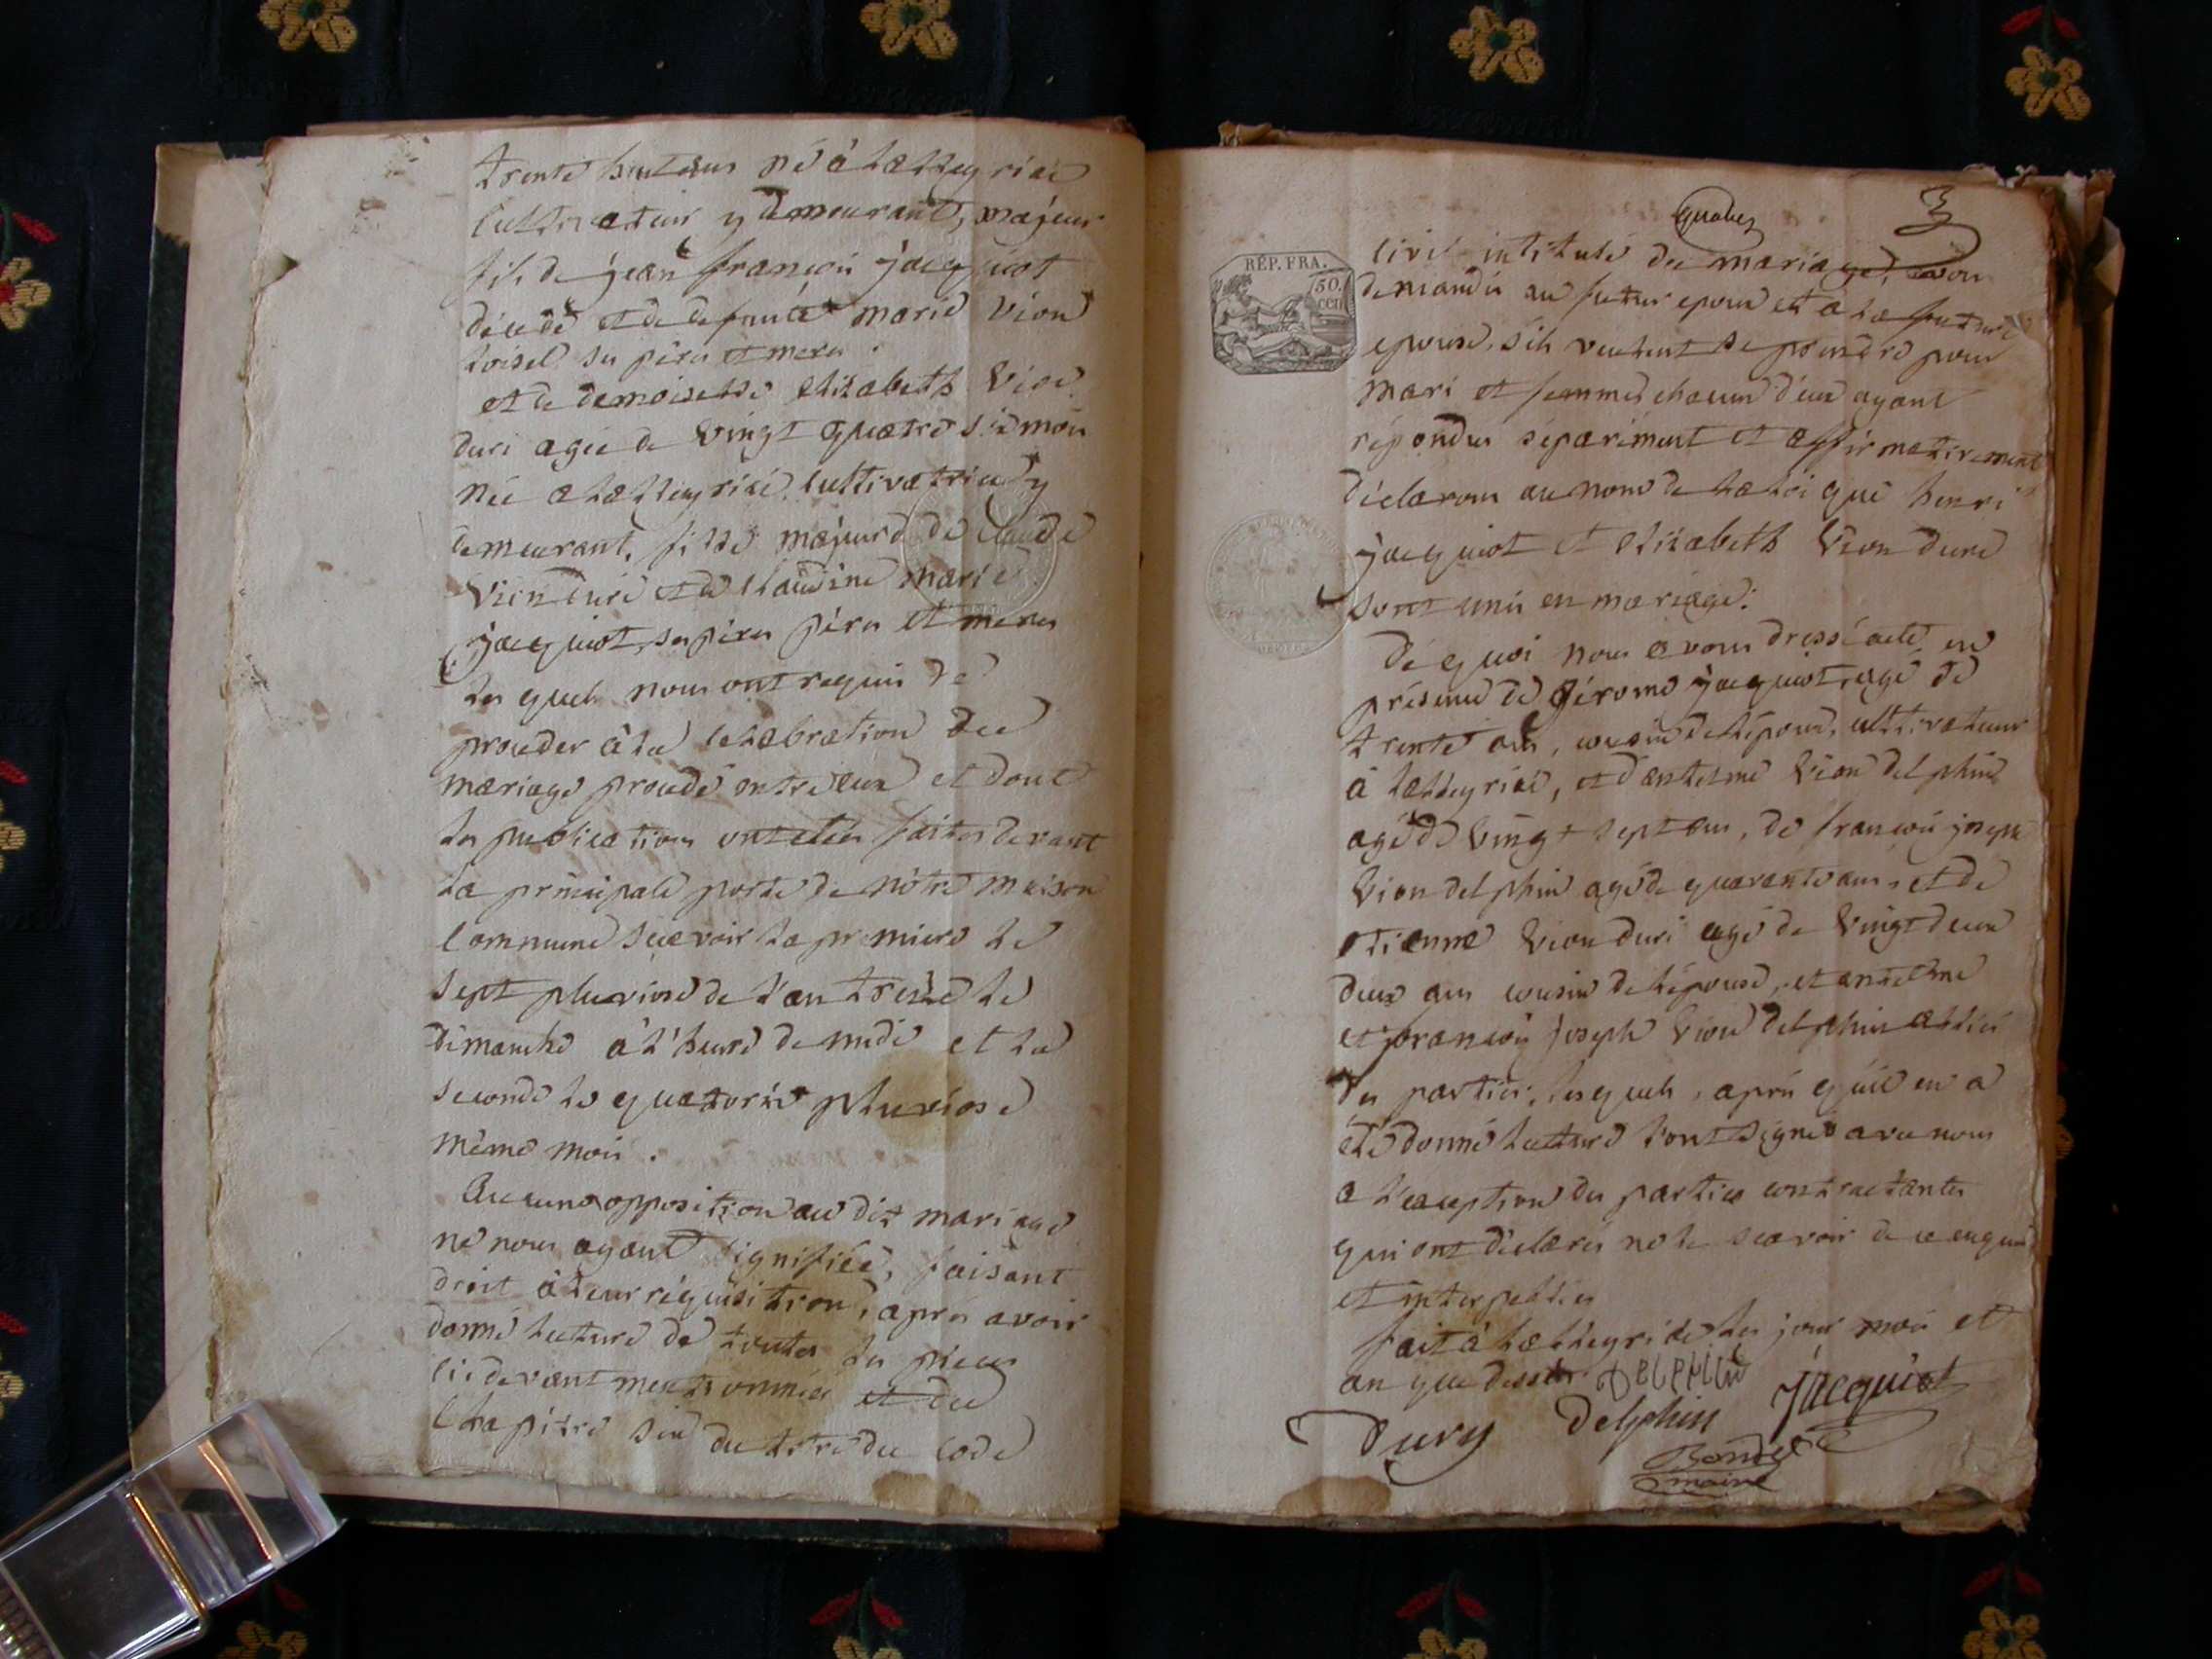 trente huit ans né à Latteyriae
cultivateur y demeurant, majeur
fils de jean françois jacquiot
décédé et de defunte marie Vion
Loisel ses pères et meres.
et de demoiselle elizabeth Vion
duri agée de Vingt quatre six mois
née a Latteyriae, cultivatrice y
demeurant, fille majeure de claude
Vion duri et de claudine marie
jacquiot, ses pères pères et meres
les quels nous ont requis de
proceder à la celebration du
mariage procédé entre eux et dont
les publications ont etées faites devant
la principale porte de nôtre maison
commune sçavoir la premiere le
sept pluviose de l'an treize le
dimanche à l'heure de midi et la
seconde le quatorze pluviose
même mois.
Aucune opposition au dit mariage
ne nous ayant signifiée, faisant
droit à leur réquisition, après avoir
donné lecture de toutes les pieces
ci devant mentionnées et du
chapitre six du titre du code
3
civil intitulé du mariage, avons
RÉP. FRA.
50. cen
demandés au futur epoux et a la future
epouse, s'ils veulent se prendre pour
mari et femme, chacun d'eux ayant
répondus séparément et affirmativement
déclarons au nom de la loi que henri
jacquiot et elizabeth Vion dure
sont unis en mariage.
de quoi nous avons dressé acte en
présence de Jérome jacquiot, agé de
trente ans, cousin de l'époux, cultivateur
à Latteyriae, et d'antelme Vion delphin
agé de Vingt sept ans, de françois joseph
Vion delphin agé de quarante ans, et de
etienne Vion duri agé de Vingt deux
deux ans cousin de l'épouse, et antelme
et françois joseph Vion delphin alliés
des parties, lesquels, après qu'il en a
été donné lecture l'ont signés avec nous
a l'exception des parties contractantes
qui ont déclarés ne le sçavoir de ce enquis
et interpellés
fait à Latteyriae les jour mois et
an que dessus DelpHin jacquiot
Dury Delphin
maire